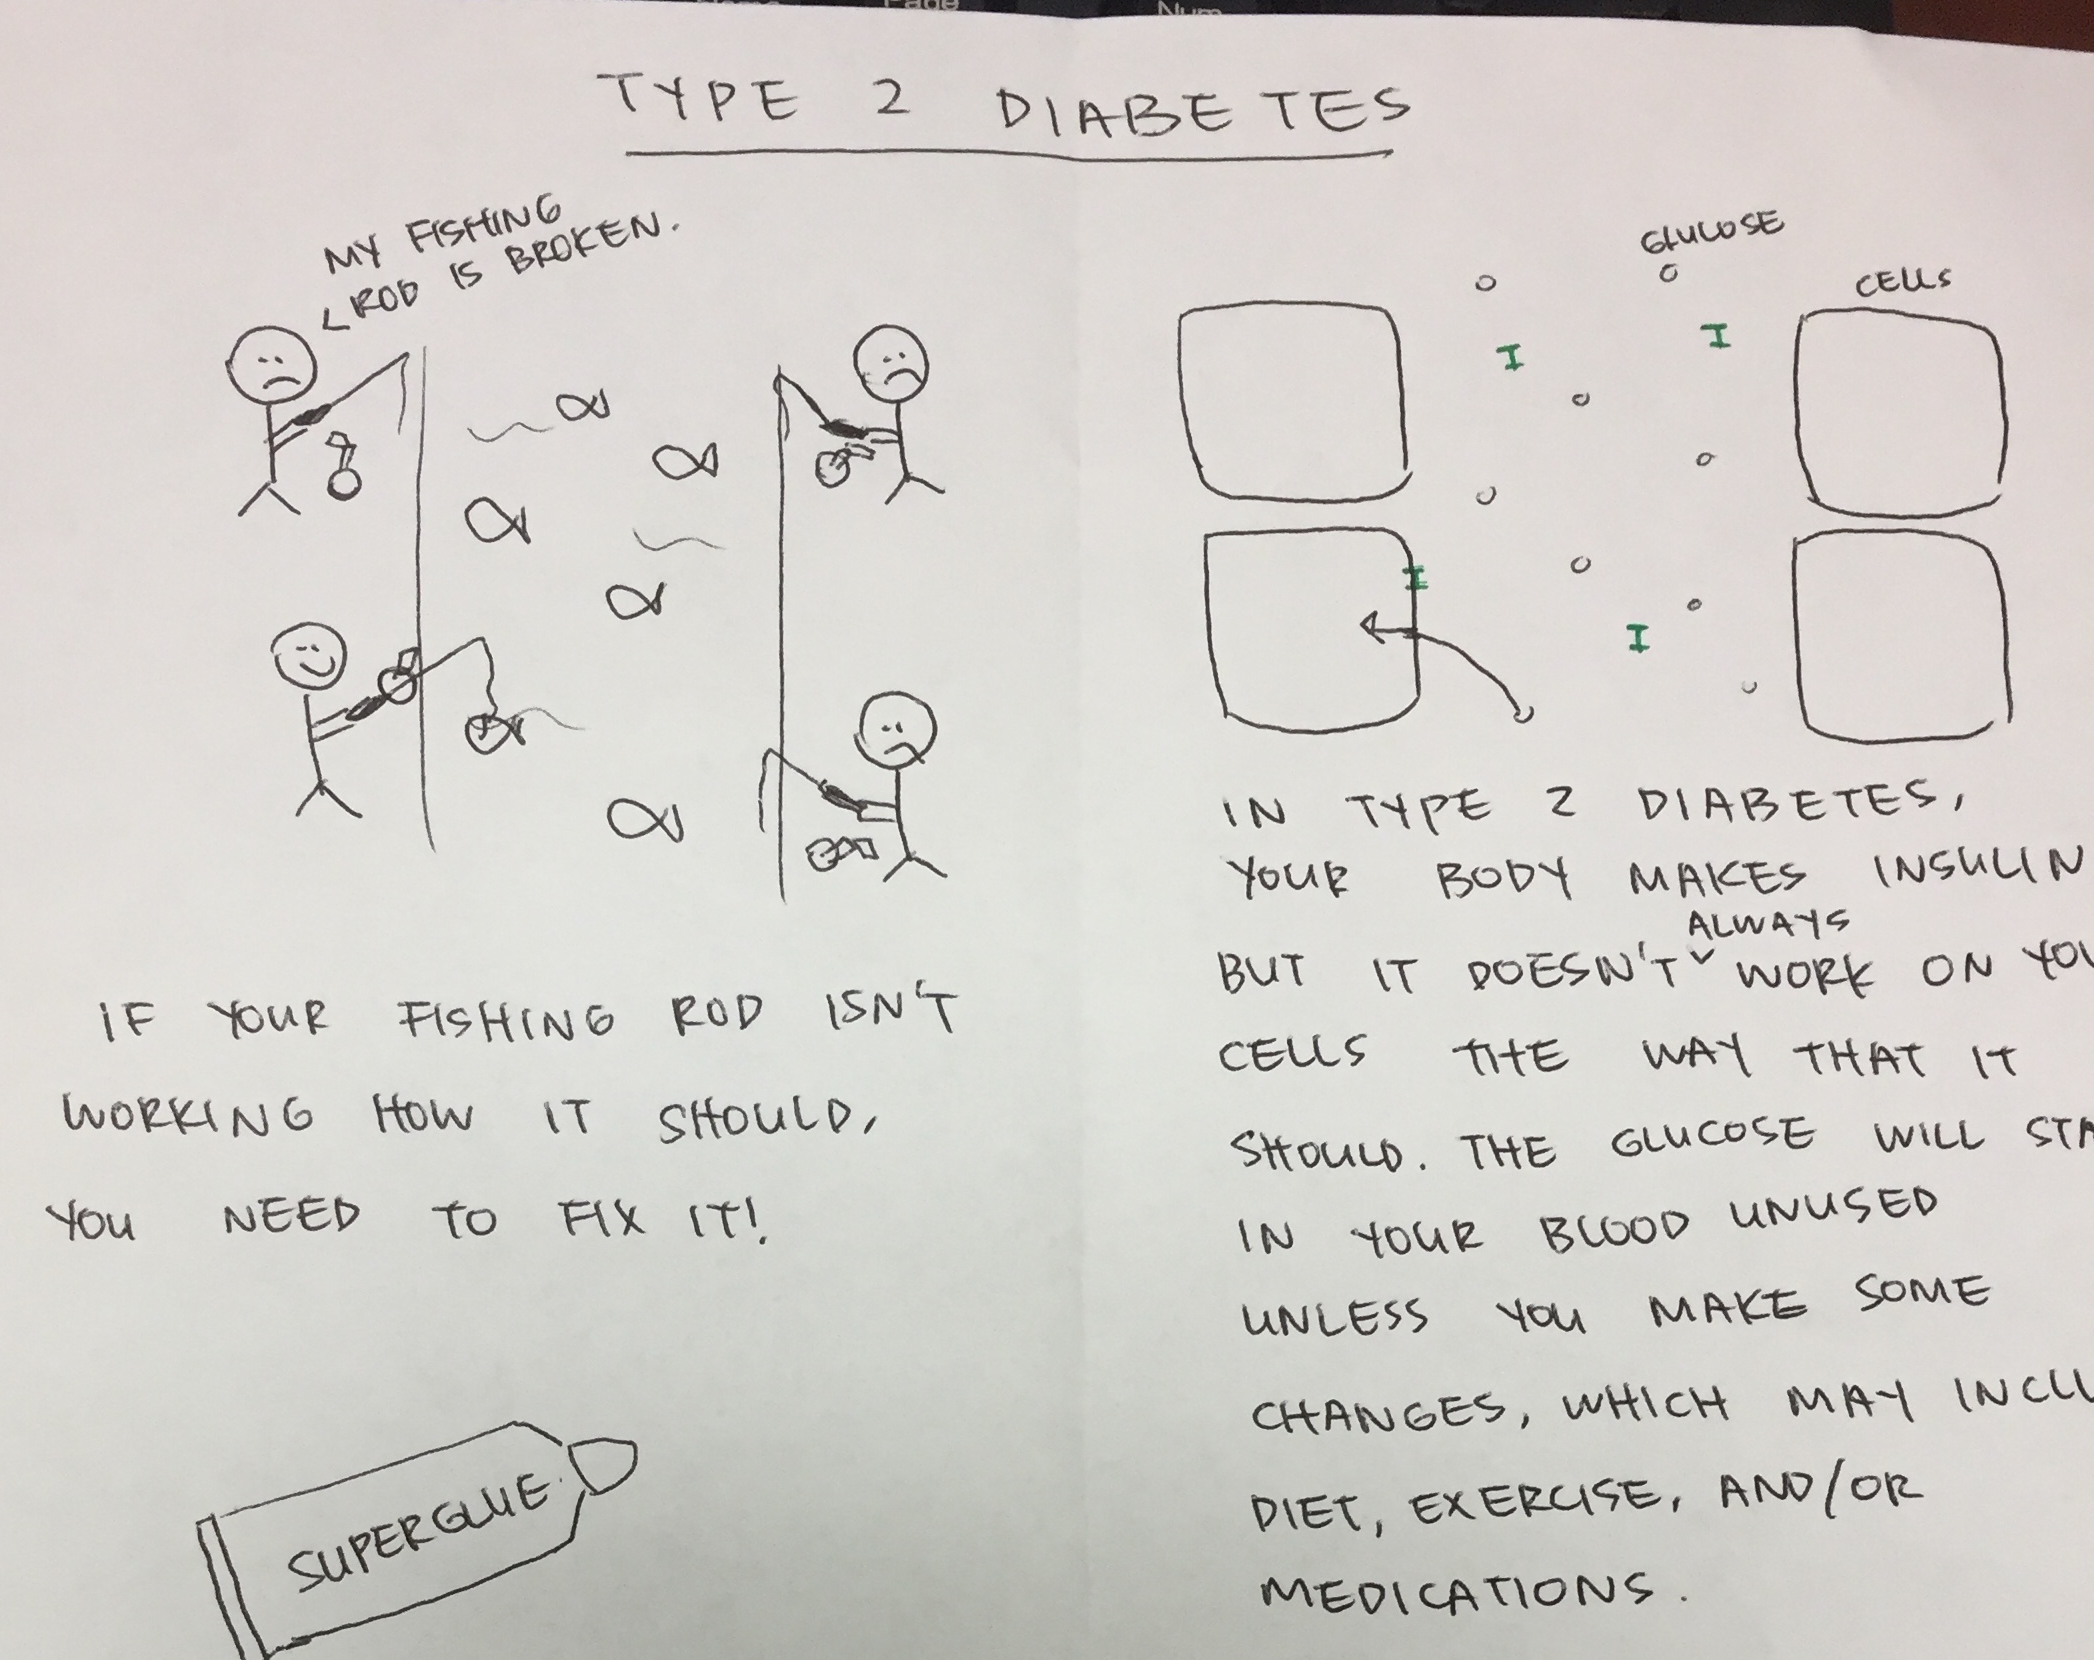 Page
Num
TYPE 2 DIABETES
MY FISHING
< ROD IS BROKEN.
IF YOUR FISHING ROD ISN'T
WORKING HOW IT SHOULD,
YOU NEED TO FIX IT!
SUPERGLUE
GLUCOSE
CELLS
I
I
I
I
IN TYPE 2 DIABETES,
YOUR BODY MAKES INSULIN
ALWAYS
BUT IT DOESN'T WORK ON YOU
CELLS THE WAY THAT IT
SHOULD. THE GLUCOSE WILL STA
IN YOUR BLOOD UNUSED
UNLESS YOU MAKE SOME
CHANGES, WHICH MAY INCLU
DIET, EXERCISE, AND/OR
MEDICATIONS.